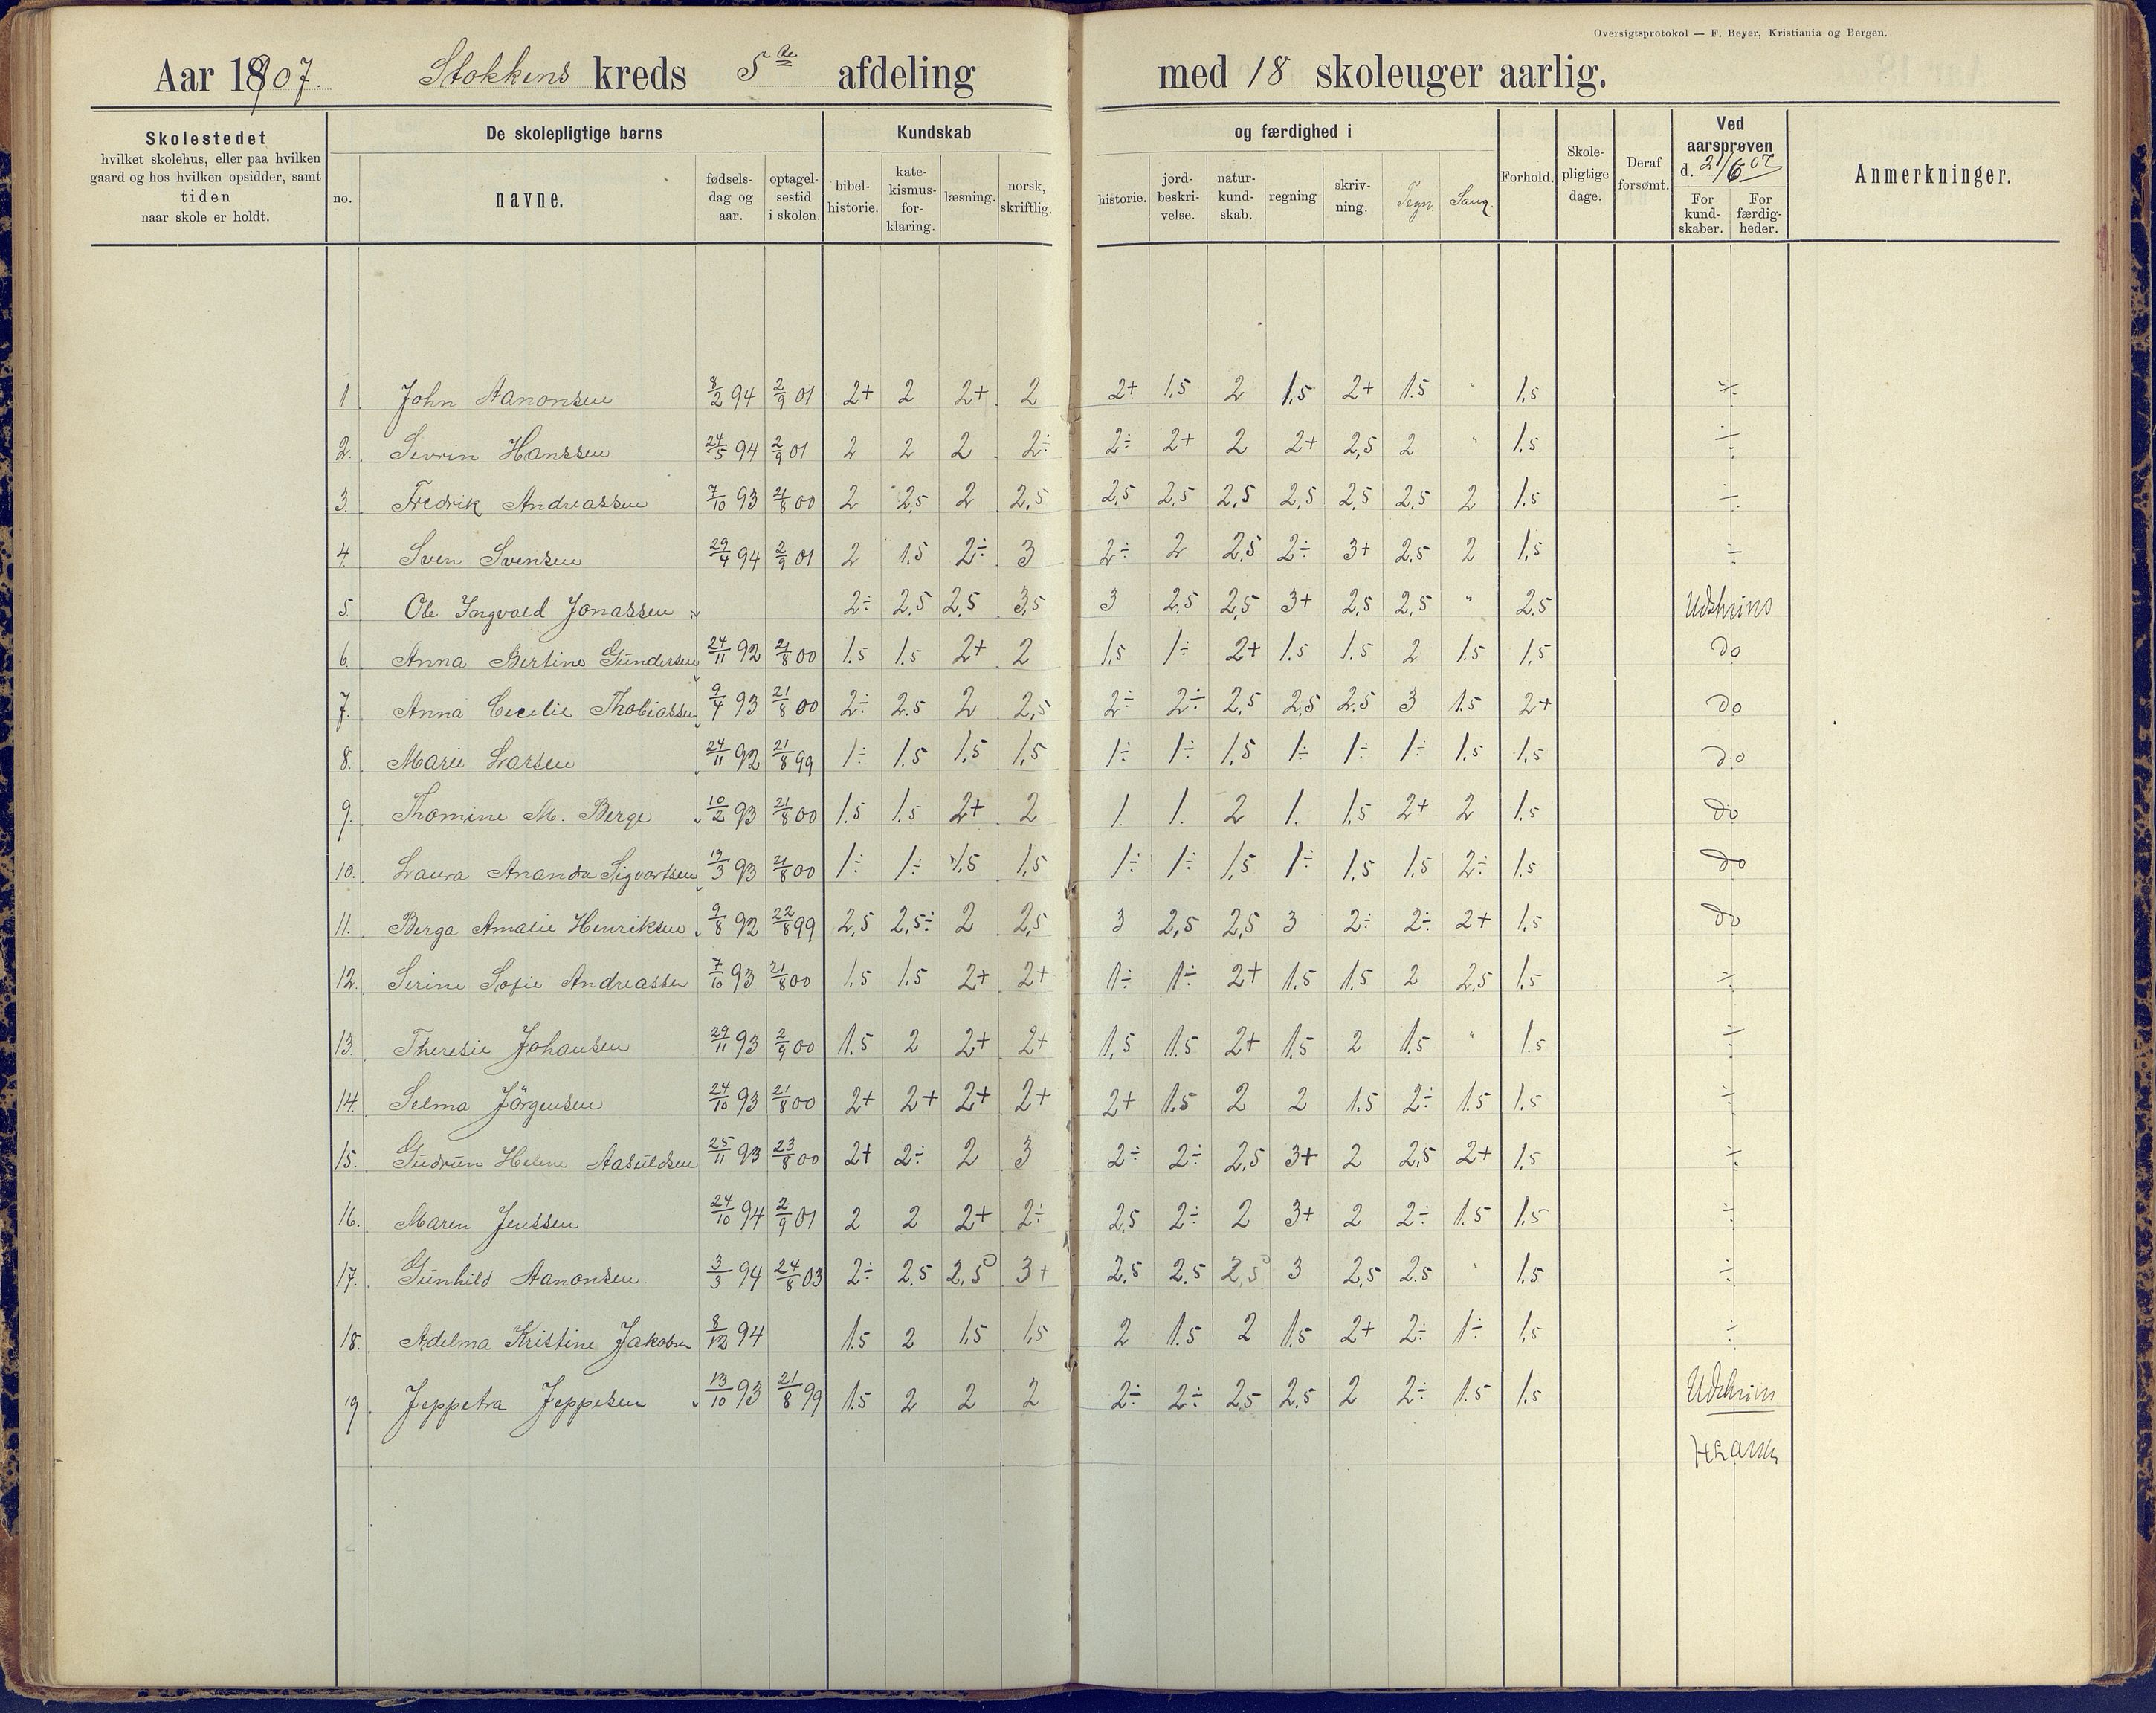 Oversigtsprotokol — F. Beyer, Kristiania og Bergen.
Aar 1907. Stokkens kreds 5te afdeling med 18 skoleuger aarlig.
Skolestedet hvilket skolehus, eller paa hvilken gaard og hos hvilken opsidder, samt tiden naar skole er holdt.
De skolepligtige børns
no. navne. fødsels-dag og aar. optagel-sestid i skolen.
Kundskab og færdighed i
bibel-historie. kate-kismus-for-klaring. læsning. norsk, skriftlig. historie. jord-beskri-velse. natur-kund-skab. regning skriv-ning. Tegn. Sang
Forhold. Skole-pligtige dage. Deraf forsømt. Ved aarsprøven d. 21/6 07 For kund-skaber. For færdig-heder. Anmerkninger.
1 John Aanonsen 8/2 94 2/9 01 2+ 2 2+ 2 2+ 1,5 2 1,5 2+ 1.5 " 1,5 ÷
2. Sevrin Hanssen 24/5 94 2/9 01 2 2 2 2÷ 2÷ 2+ 2 2+ 2,5 2 " 1.5 ÷
3. Fredrik Andreassen 7/10 93 21/8 00 2 2,5 2 2,5 2,5 2,5 2,5 2,5 2,5 2,5 2 1.5 ÷
4. Sven Svensen 29/4 94 2/9 01 2 1.5 2÷ 3 2÷ 2 2,5 2÷ 3+ 2.5 2 1,5 ÷
5. Ole Ingvald Jonassen 2÷ 2.5 2,5 3,5 3 2,5 2,5 3+ 2,5 2,5 " 2.5 Udskrives
6. Anna Bertine Gundersen 24/11 92 21/8 00 1.5 1.5 2+ 2 1,5 1÷ 2+ 1.5 1.5 2 1.5 1,5 do
7. Anna Cecelie Thobiassen 9/4 93 21/8 00 2÷ 2.5 2 2,5 2÷ 2÷ 2,5 2,5 2.5 3 1.5 2+ do
8. Marie Larsen 24/11 92 21/8 99 1÷ 1.5 1,5 1,5 1÷ 1÷ 1,5 1÷ 1÷ 1÷ 1.5 1.5 do
9. Thomine M. Berge 10/2 93 21/8 00 1.5 1.5 2+ 2 1. 1. 2 1. 1.5 2+ 2 1.5 do
10. Laura Ananda Sigvartsen 19/3 93 21/8 00 1÷ 1÷ 1.5 1,5 1÷ 1÷ 1,5 1÷ 1,5 1,5 2÷ 1.5 do
11. Berga Amalie Henriksen 9/8 92 22/8 99 2,5 2,5÷ 2 2,5 3 2,5 2,5 3 2÷ 2÷ 2+ 1.5 do
12. Serine Sofie Andreassen 7/10 93 21/8 00 1.5 1.5 2+ 2+ 1÷ 1÷ 2+ 1.5 1.5 2 2,5 1.5 ÷
13. Theresie Johansen 29/11 93 2/9 00 1.5 2 2+ 2+ 1,5 1.5 2+ 1.5 2 1.5 " 1.5 ÷
14. Selma Jörgensen 24/10 93 21/8 00 2+ 2+ 2+ 2+ 2+ 1.5 2 2 1.5 2÷ 1.5 1.5 ÷
15. Gudrun Helene Aasuldsen 25/11 93 23/8 00 2+ 2÷ 2 3 2÷ 2÷ 2,5 3+ 2 2,5 2+ 1.5 ÷
16. Maren Jenssen 24/10 94 2/9 01 2 2 2+ 2÷ 2,5 2÷ 2 3+ 2 2÷ 1.5 1.5 ÷
17. Gunhild Aanonsen 3/3 94 24/8 03 2÷ 2.5 2,5 3+ 2.5 2.5 2,5 3 2,5 2.5 " 1.5 ÷
18. Adelma Kristine Jakobsen 8/12 94 1.5 2 1,5 1,5 2 1.5 2 1.5 2+ 2÷ 1÷ 1,5 ÷
19. Jeppetra Jeppesen 13/10 93 21/8 99 1.5 2 2 2 2÷ 2÷ 2,5 2.5 2 2÷ 1.5 1.5 Udskrives